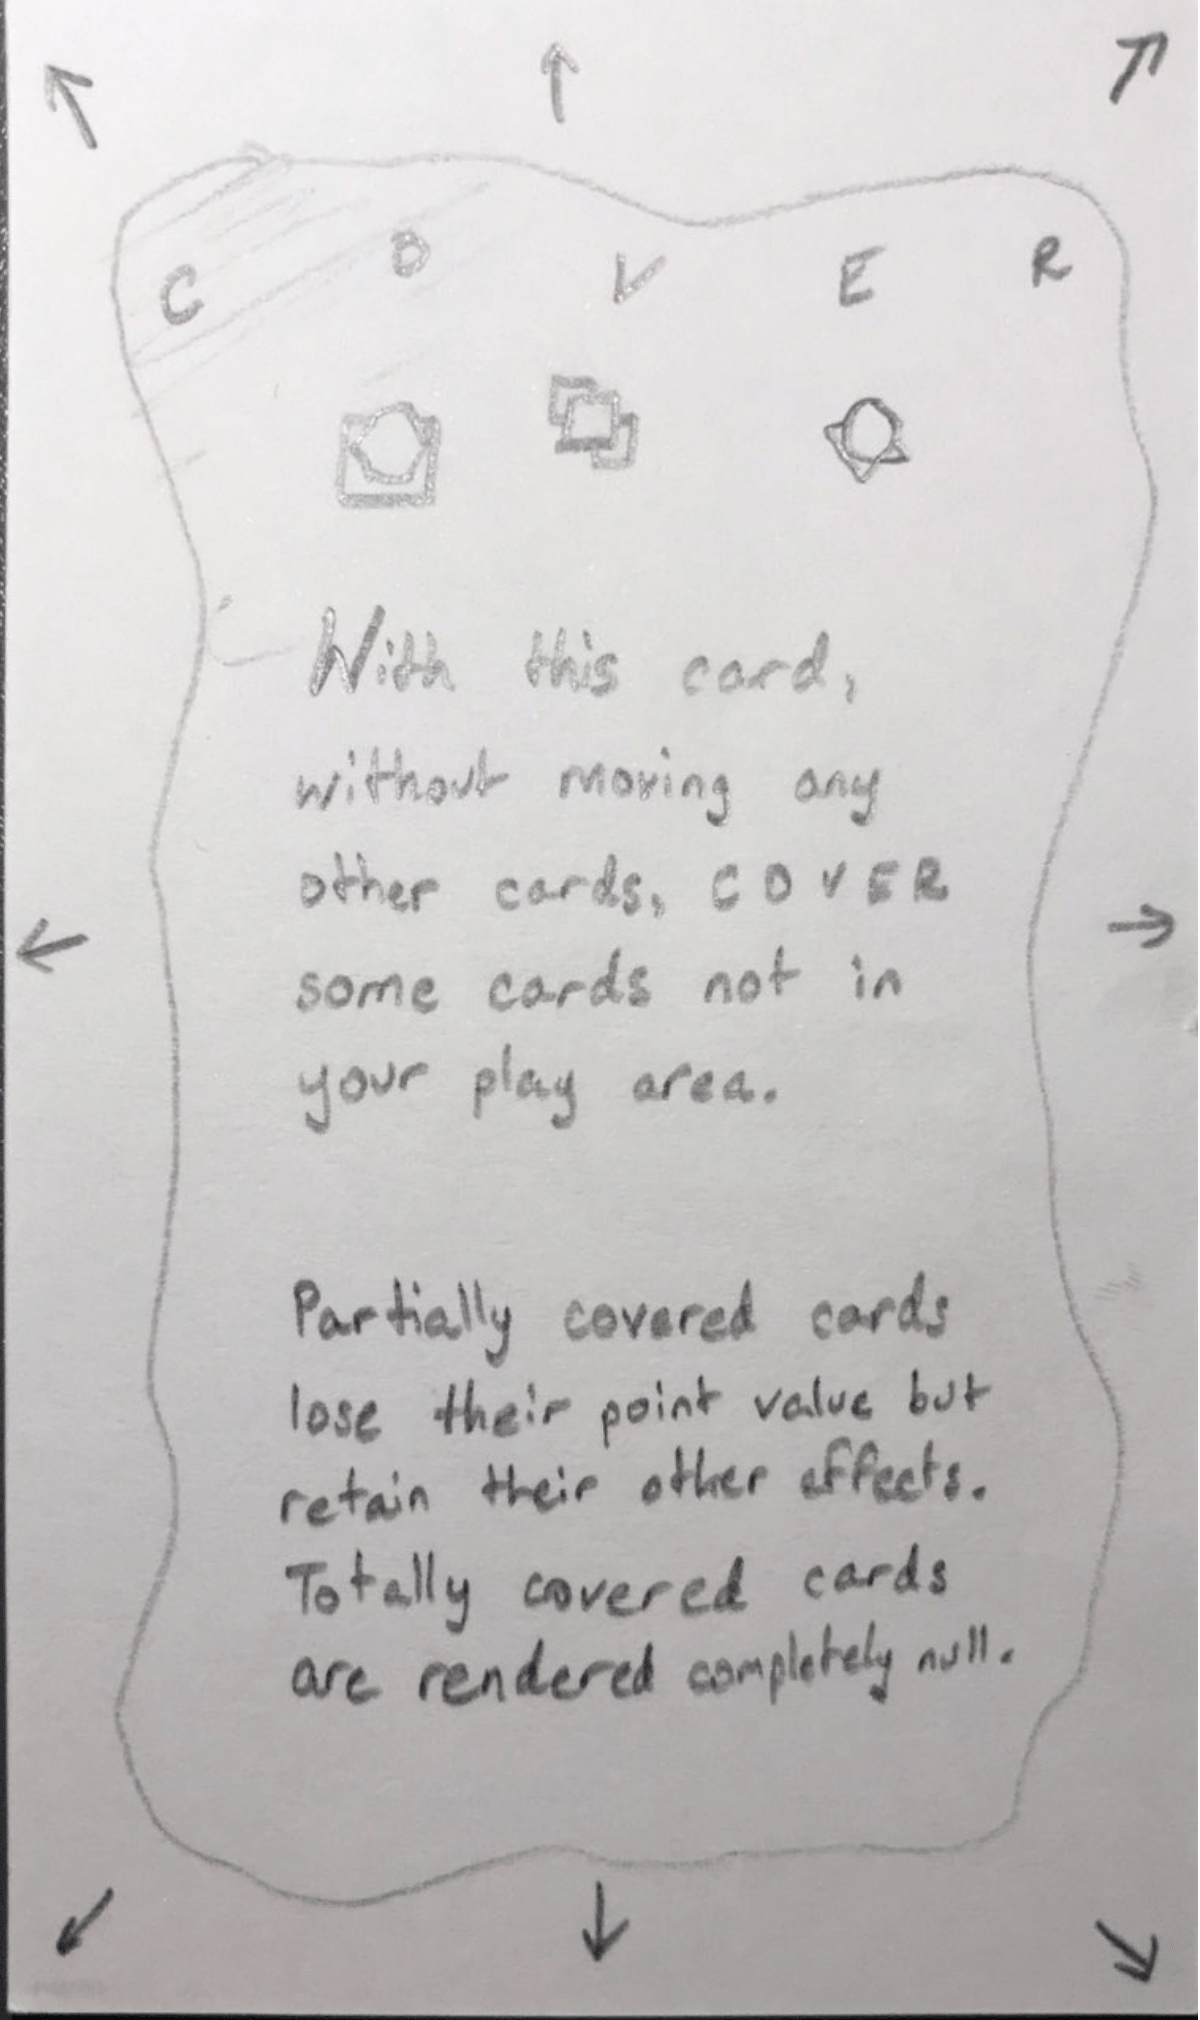 C O V E R
With this card,
without moving any
other cards, COVER
some cards not in
your play area.
Partially covered cards
lose their point value but
retain their other effects.
Totally covered cards
are rendered completely null.